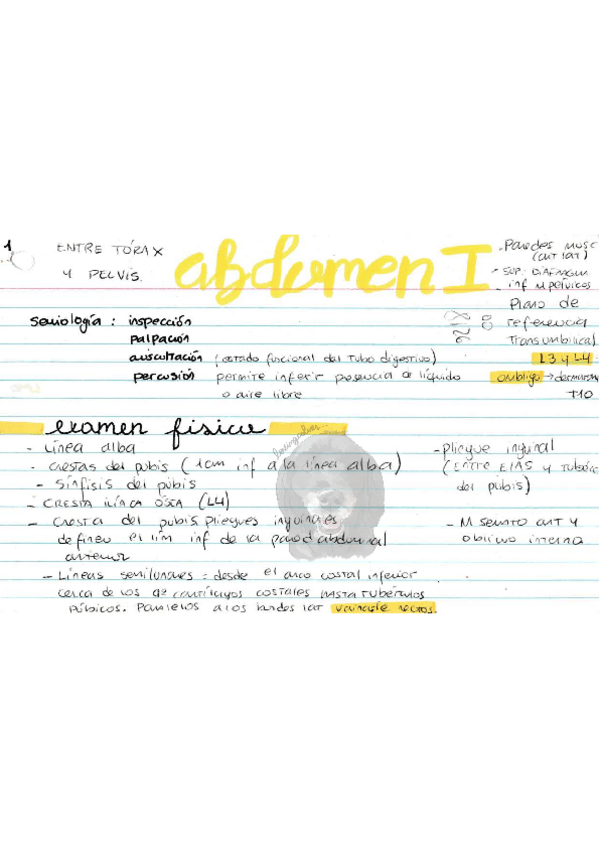 1
ENTRE TÓRAX
Y PELVIS.
abdomen I
- Paredes musc
(ant lat)
- sup. DIAFRAGM
- inf M pélvicos
Plano de
referencia
Transumbilical
L3 y L4
ombligo → dermatoma
T10
semiología : inspección
palpación
auscultación (estado funcional del tubo digestivo)
percusión permite inferir presencia de líquido
o aire libre
examen físico
- Línea alba
- crestas del pubis (1cm inf a la línea alba)
- sínfisis del pubis
- CRESTA ILÍACA ÓSEA (L4)
- Cresta del pubis, pliegues inguinales
definen el lim inf de la pared abdominal
anterior
- Líneas semilunares : desde el arco costal inferior
cerca de los 9º cartílagos costales hasta tubérculos
púbicos. Paralelos a los bordes lat vaina de rectos.
- pliegue inguinal
(ENTRE EIAS y tubérc
del pubis)
- M serrato ant y
oblicuo interno